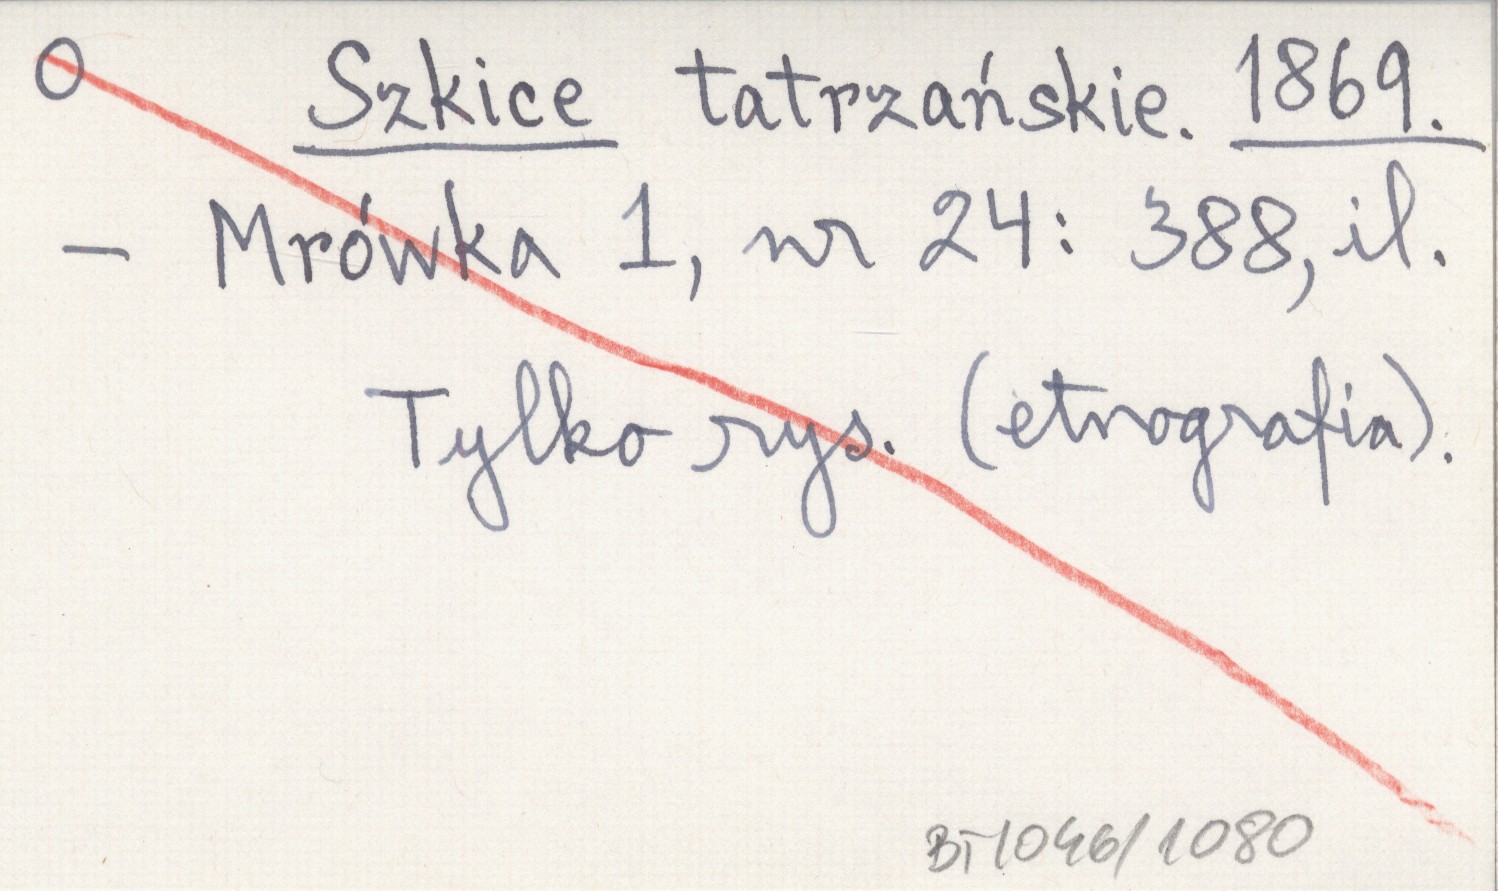 O Szkice tatrzańskie. 1869.
— Mrówka 1, nr 24: 388, il.
Tylko rys. (etnografia).
BT/046/1080